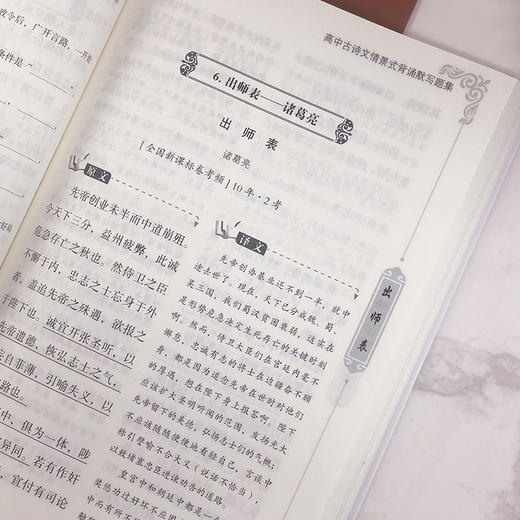 政令后，广开言路，一开始
条件是“
高中古诗文情景式背诵默写题集
6.出师表——诸葛亮
出师表
诸葛亮
[全国新课标卷考频]10年·2考
原文
先帝创业未半而中道崩殂。
今天下三分，益州疲弊，此诚
危急存亡之秋也。然侍卫之臣
不懈于内，忠志之士忘身于外
者，盖追先帝之殊遇，欲报之
于陛下也。诚宜开张圣听，以
先帝遗德，恢弘志士之气，
妄自菲薄，引喻失义，以
路也。
中，俱为一体，陟
异同。若有作奸
宜付有司论
译文
先帝创办基业还不到一半，就中
途去世了。现在，天下已分成魏、蜀、
吴三国，我们蜀汉贫困衰弱，这实在
是形势危急决定生死存亡的关键时刻
啊。然而，侍卫大臣们在宫廷内毫不
懈怠，忠诚有志的将士在边疆奋不顾
身，都是因为追念先帝在世时对他们
的厚遇，想在陛下身上报答啊。陛下
应该扩大圣明听闻的范围，发扬光大
先帝留下的美德，弘扬志士们的气概；
不应该随随便便地看轻自己，言谈中
称引譬喻不合大义（说话不恰当），
以致堵塞忠臣进谏劝告的道路。
皇宫中和朝廷中都是一个
奖惩功过好坏不应因
中而有所不同
出师表